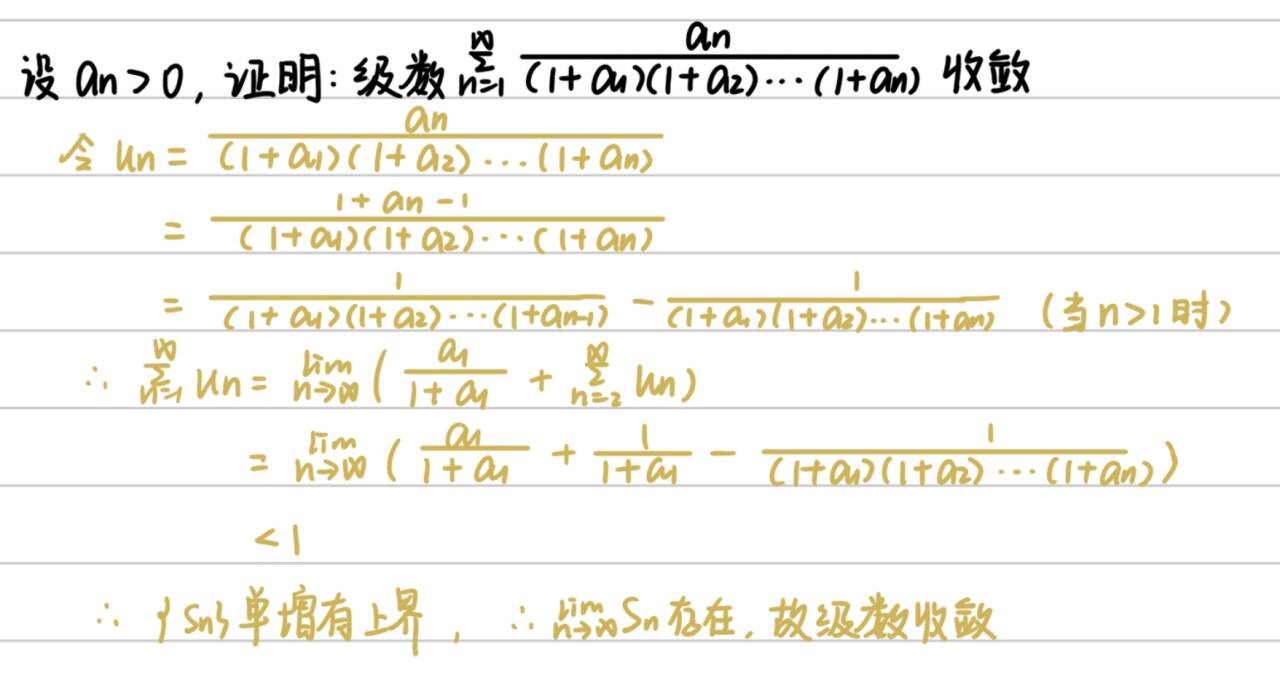 设 aₙ > 0, 证明: 级数 ∑_{n=1}^{∞} aₙ/((1+a₁)(1+a₂)⋯(1+aₙ)) 收敛
令 uₙ = aₙ/((1+a₁)(1+a₂)⋯(1+aₙ))
= (1+aₙ-1)/((1+a₁)(1+a₂)⋯(1+aₙ))
= 1/((1+a₁)(1+a₂)⋯(1+aₙ₋₁)) - 1/((1+a₁)(1+a₂)⋯(1+aₙ)) (当 n>1 时)
∴ ∑_{n=1}^{∞} uₙ = lim_{n→∞} ( a₁/(1+a₁) + ∑_{n=2}^{∞} uₙ )
= lim_{n→∞} ( a₁/(1+a₁) + 1/(1+a₁) - 1/((1+a₁)(1+a₂)⋯(1+aₙ)) )
< 1
∴ {Sₙ}单增有上界, ∴ lim_{n→∞} Sₙ 存在, 故级数收敛